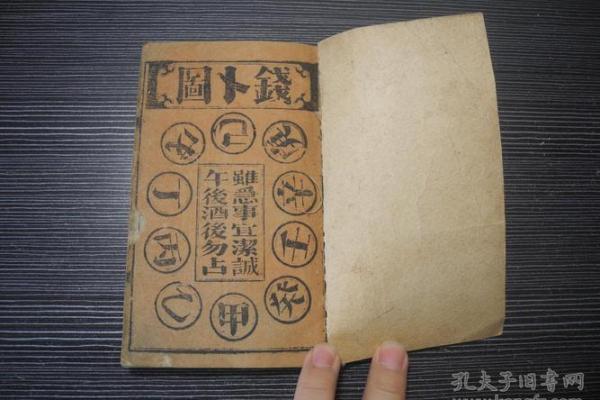 錢卜圖
雖急事宜潔誠
午後酒後勿占
甲
乙
丙
丁
戊
己
庚
辛
壬
癸
孔夫子旧书网